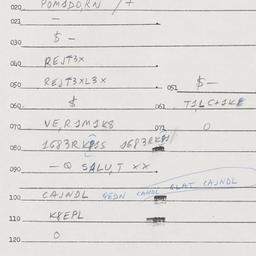 020 POMADO,RN /+
021 —
030 $ —
040 REJT3X
050 REJT3XL3X
051 $—
060 $
061 T1LC+1KE
070 VE,R1M1K8
071 0
080 1683RKP1S 1683RKP1
090 —Q SALU,T XX
CAJNDL GEDN CANDL GLAT CAJNDL
100
110 K8EPL
120 0